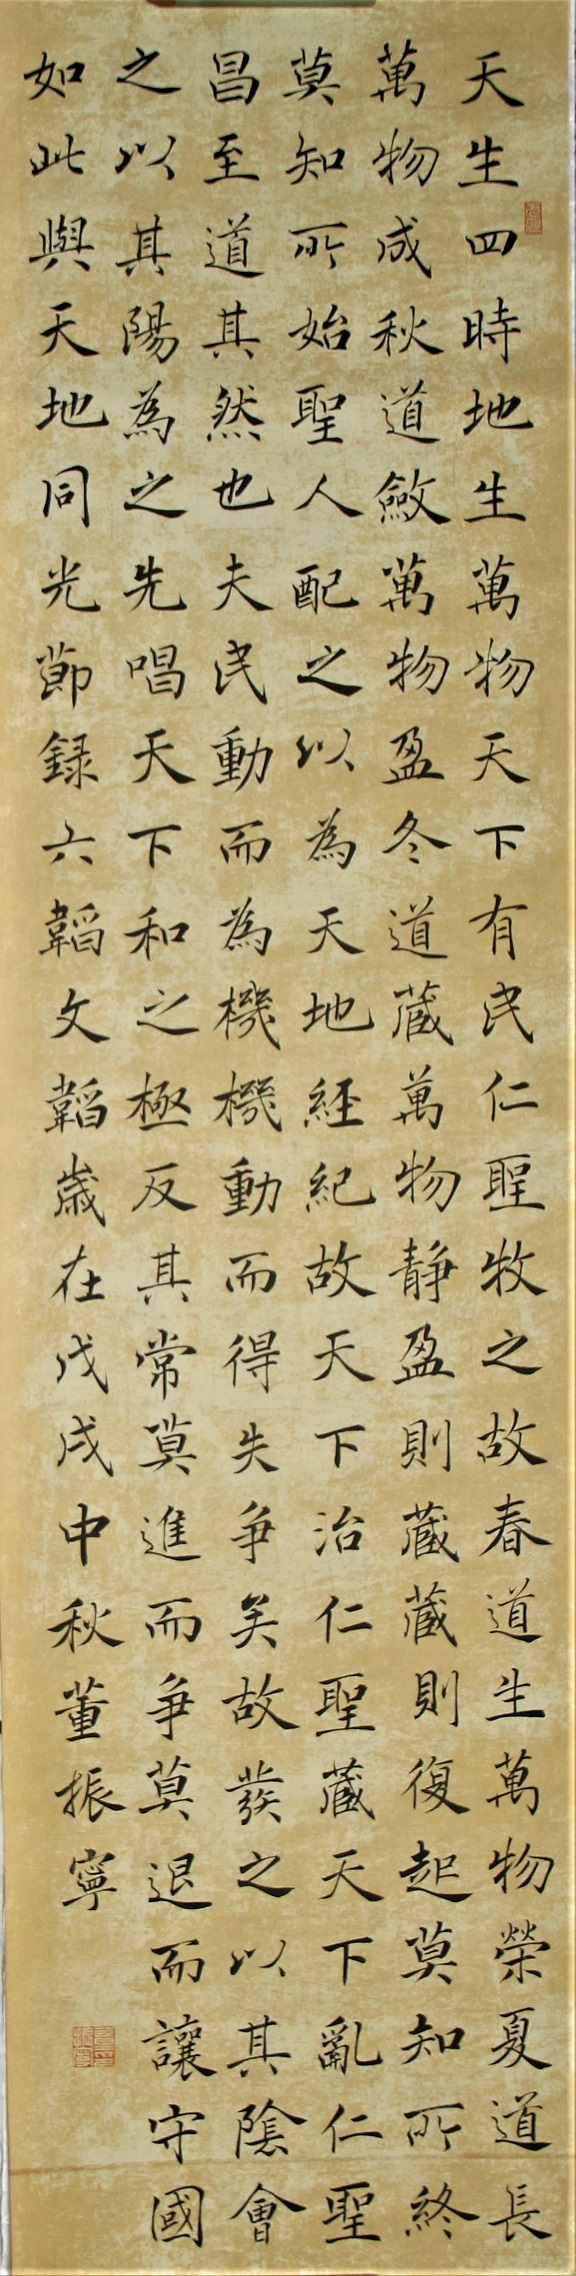 天生四時地生萬物天下有民仁聖牧之故春道生萬物榮夏道長
萬物成秋道斂萬物盈冬道藏萬物靜盈則藏藏則復起莫知所終
莫知所始聖人配之以為天地經紀故天下治仁聖藏天下亂仁聖
昌至道其然也夫民動而為機機動而得失爭矣故發之以其陰會
之以其陽為之先唱天下和之極反其常莫進而爭莫退而讓守國
如此與天地同光節録六韜文韜歲在戊戌中秋董振寧